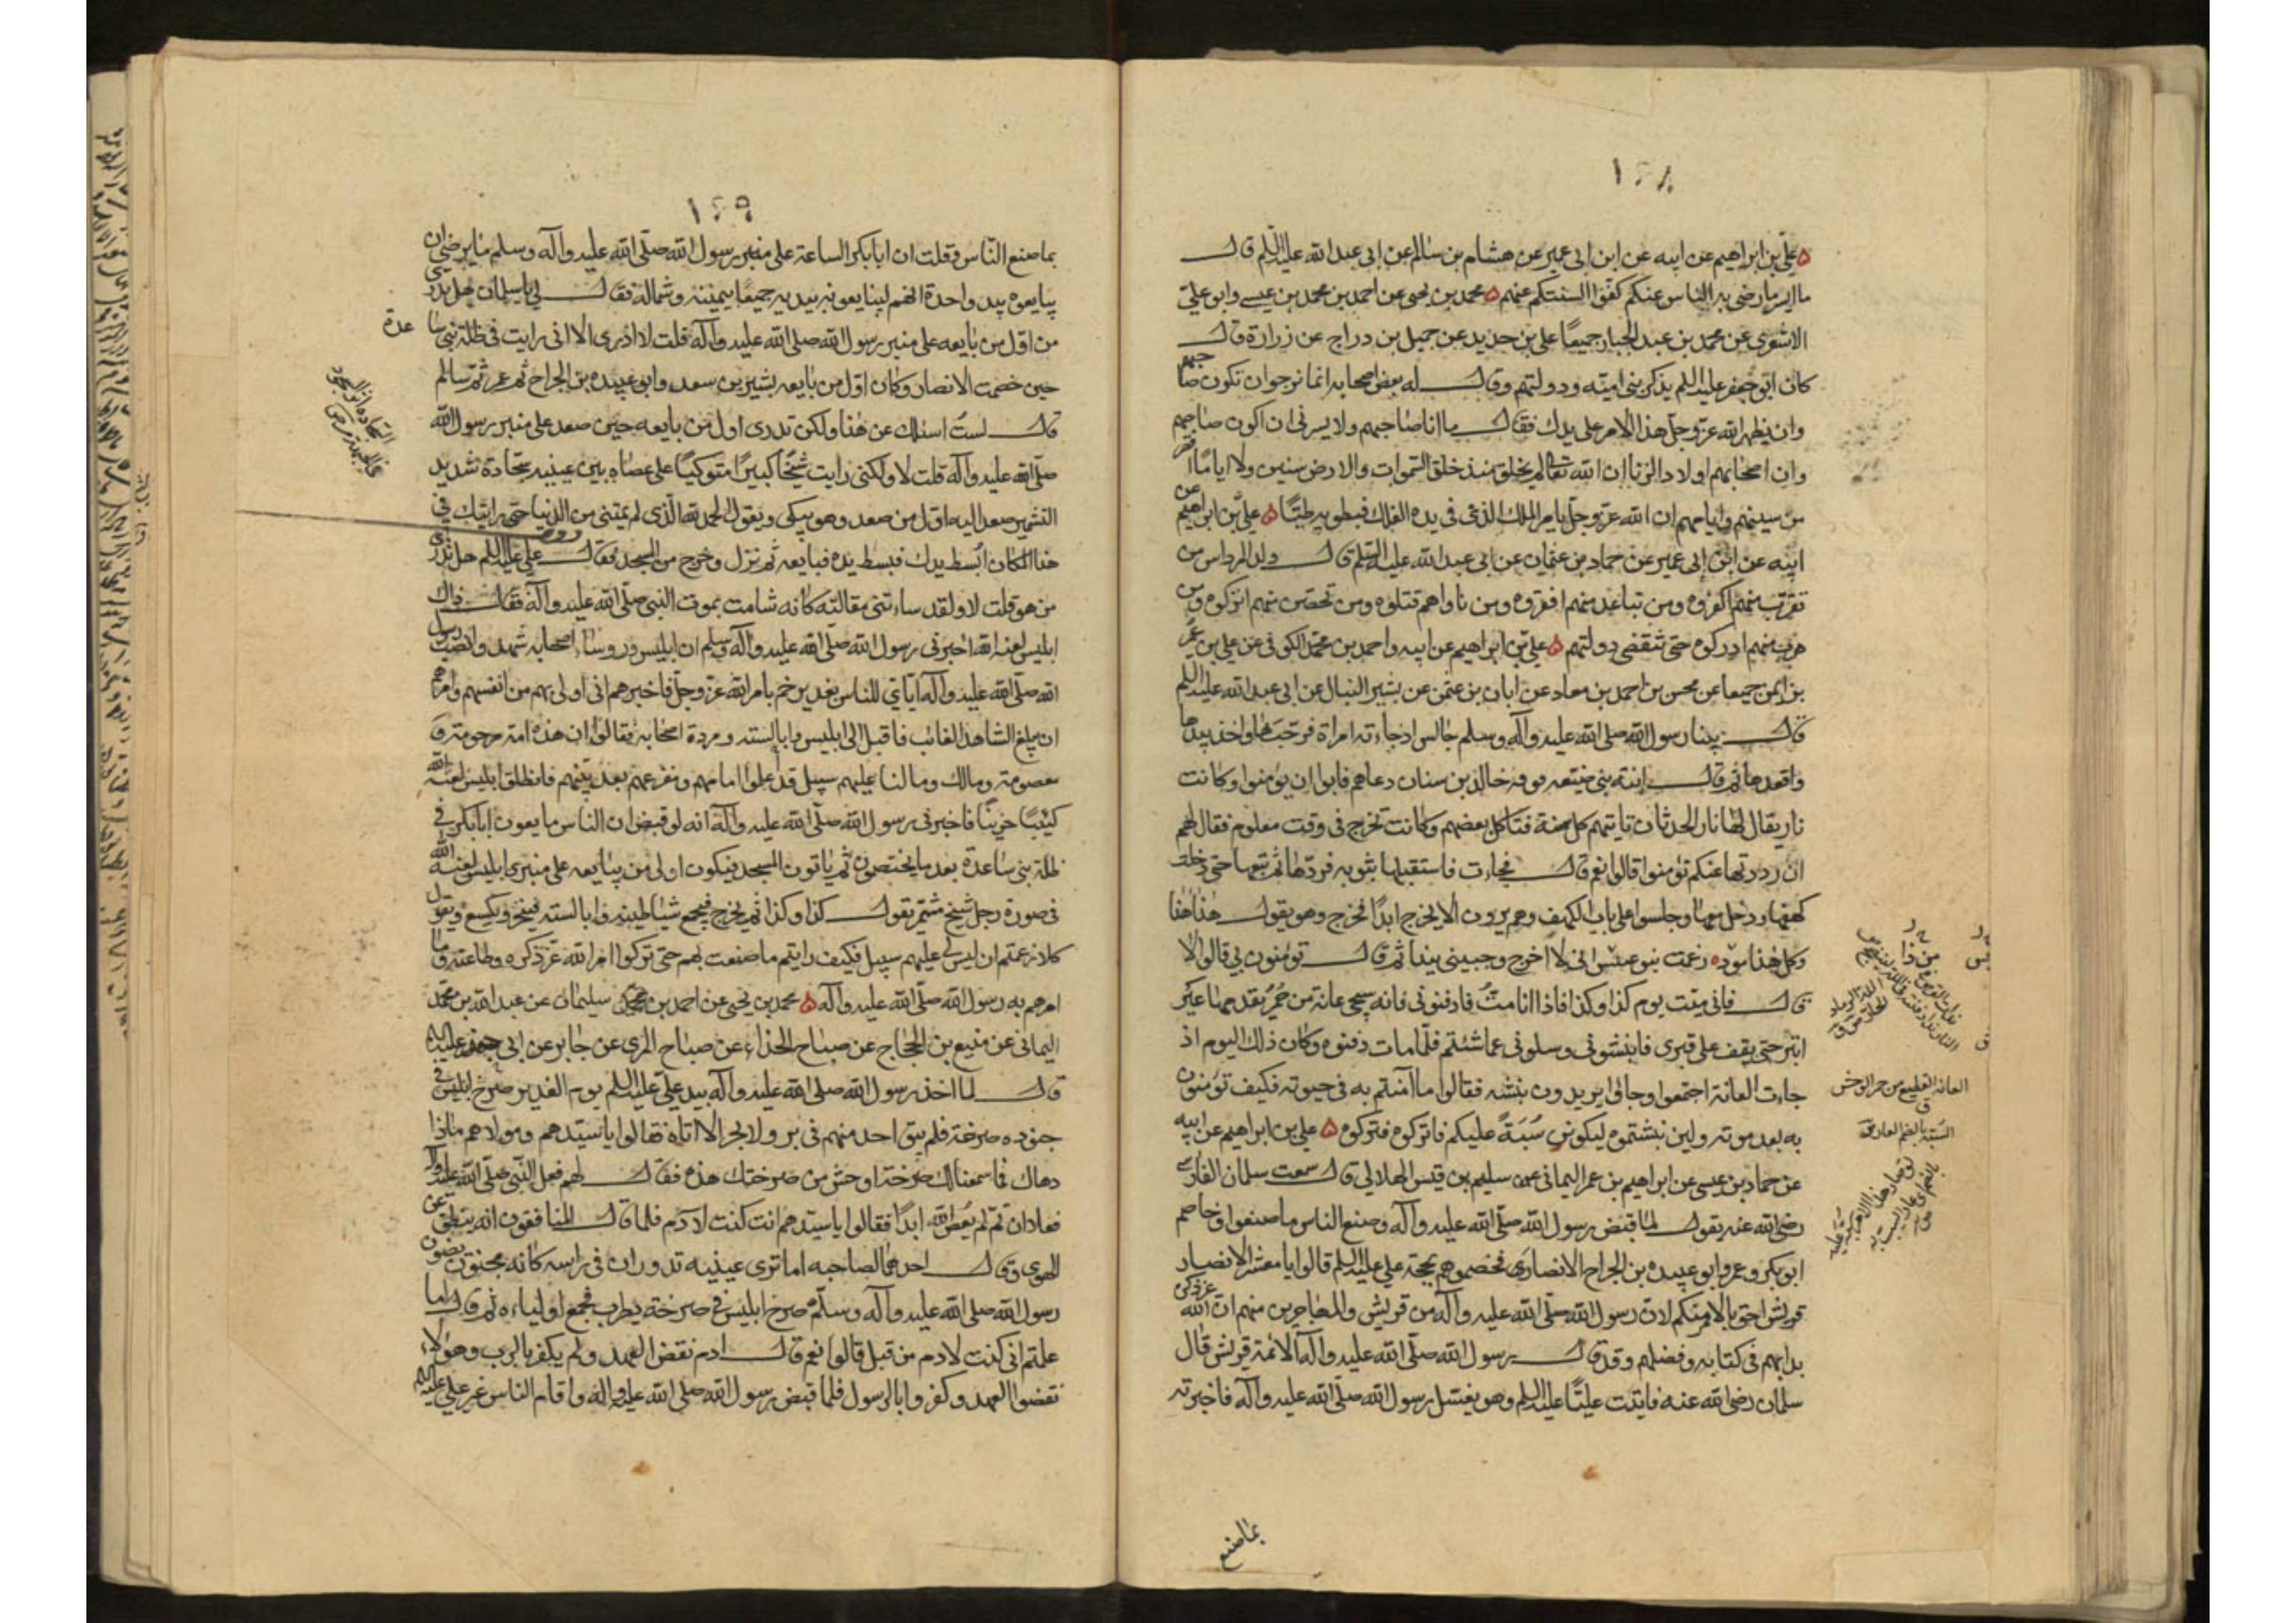 ١٢٨
علي بن ابراهيم عن ابيه عن ابن ابي عمير عن هشام بن سالم عن ابي عبد الله عليه السلم قال
ما ايرما رضي به الناس عنكم كفوا السنتكم عنهم محمد بن يحيى عن احمد بن محمد بن عيسى وابو علي
الاشعري عن محمد بن عبد الجبار جميعا علي بن حديد عن جميل بن دراج عن زرارة قال
كان ابو جعفر عليه السلم يذكر بني امية ودولتهم وقال له بعض اصحابه انما نرجوان تكون صاحبهم
وان يظهر الله عز وجل هذا الامر على يدك فقال ما انا صاحبهم ولا يسرني ان اكون صاحبهم
وان اصحابهم اولاد الزنا ان الله تعالى لم يخلق منذ خلق السموات والارض سنين ولا اياما اقصر
من سينهم وايامهم ان الله عز وجل يامر الملك الذي في يده الفلك فيطويه طيا علي بن ابراهيم عن
ابيه عن ابن ابي عمير عن حماد بن عثمان عن ابي عبد الله عليه السلم قال ولد المرداس من
تقرب منهم اكفروه ومن تباعد منهم افقروه ومن ناواهم قتلوه ومن تحصن منهم انزلوه ومن
هرب منهم ادركوه حتى تنقضي دولتهم علي بن ابراهيم عن ابيه واحمد بن محمد الكوفي عن علي بن عمر
بن ايمن جميعا عن محسن بن احمد بن معاد عن ابان بن عثمن عن بشير النبال عن ابي عبد الله عليه السلم
قال بينا رسول الله صلى الله عليه وآله وسلم جالس اذ جاءته امراة فرحب بها واخذ بيدها
واقعدها ثم قال ابنة نبي ضيعه قومه خالد بن سنان دعاهم فابوا ان يؤمنوا وكانت
نار يقال لها نار الحدثان تاتيهم كل سنة فتاكل بعضهم وكانت تخرج في وقت معلوم فقال لهم
ان رددتها عنكم تؤمنوا قالوا نعم قال فجاءت فاستقبلها بثوبه فردها ثم تبعها حتى دخلت
كهفها ودخل معها وجلسوا على باب الكهف وهم يرون الا يخرج ابدا فخرج وهو يقول هذا هذا
وكل هذا مؤده زعمت بنو عبس اني لا اخرج وجبيني يندا ثم قال تؤمنون بي قالوا لا
قال فاني ميت يوم كذا وكذا فاذا انا مت فادفنوني فانه سيجئ عانة من حمر يقدمها عير
ابتر حتى يقف على قبري فانبشوني وسلوني عما شئتم فلما مات دفنوه وكان ذلك اليوم اذ
جاءت العانة اجتمعوا وجاؤا يريدون نبشه فقالوا ما آمنتم به في حيوته فكيف تؤمنون
به بعد موته ولين نبشتموه ليكونن سبة عليكم فاتركوه فتركوه علي بن ابراهيم عن ابيه
عن حماد بن عيسى عن ابراهيم بن عمر اليماني عن سليم بن قيس الهلالي قال سمعت سلمان الفارسي
رضي الله عنه يقول لما قبض رسول الله صلى الله عليه وآله وصنع الناس ما صنعوا وخاصم
ابو بكر وعمر وابو عبيده بن الجراح الانصاري فخصموهم بحجة علي عليه السلم قالوا يا معشر الانصار
قريش احق بالامر منكم لان رسول الله صلى الله عليه وآله من قريش والمهاجرين منهم ان الله عز ذكره
بدا بهم في كتابه وفضلهم وقد قال رسول الله صلى الله عليه وآله الائمة من قريش قال
سلمان رضي الله عنه فاتيت عليا عليه السلم وهو يغسل رسول الله صلى الله عليه وآله فاخبرته
بما صنع
العانه القطيع من حمر الوحش
ق
السبة بالضم العار ق
١٢٩
بما صنع الناس وقلت ان ابا بكر الساعة على منبر رسول الله صلى الله عليه وآله وسلم ما يرضى ان
يبايعوه بيد واحدة انهم ليبايعونه بيديه جميعا بيمينه وشماله فقال لي يا سلمان هل تدري
من اول من بايعه على منبر رسول الله صلى الله عليه وآله قلت لا ادري الا اني رايت في ظلة بني ساعدة
حين خصمت الانصار وكان اول من بايعه بشير بن سعد وابو عبيده بن الجراح ثم عمر ثم سالم
قال لست اسئلك عن هذا ولكن تدري اول من بايعه حين صعد على منبر رسول الله
صلى الله عليه وآله قلت لا ولكني رايت شيخا كبيرا متوكيا على عصاه بين عينيه سجادة شديد
التشمير صعد اليه اول من صعد وهو يبكي ويقول الحمد لله الذي لم يمتني من الدنيا حتى رايتك في
هذا المكان ابسط يدك فبسط يده فبايعه ثم نزل وخرج من المسجد فقال علي عليه السلم هل تدري
من هو قلت لا ولقد ساءتني مقالته كانه شامت بموت النبي صلى الله عليه وآله فقال ذاك
ابليس لعنه الله اخبرني رسول الله صلى الله عليه وآله وسلم ان ابليس وروساء اصحابه شهدوا نصب رسول
الله صلى الله عليه وآله اياي للناس بغدير خم بامر الله عز وجل فاخبرهم اني اولى بهم من انفسهم وامرهم
ان يبلغ الشاهد الغائب فاقبل الى ابليس وابالسته ومردة اصحابه فقالوا ان هذه امة مرحومة و
معصومة ومالك ومالنا عليهم سبيل قد علموا امامهم ومفزعهم بعد نبيهم فانطلق ابليس لعنه الله
كئيبا حزينا فاخبرني رسول الله صلى الله عليه وآله انه لو قبض ان الناس ما يعون ابا بكر في
ظلة بني ساعدة بعد ما يختصمون ثم ياتون المسجد فيكون اولى من يبايعه على منبري ابليس لعنه الله
في صورة رجل شيخ مشمر يقول كذا وكذا ثم يخرج فيجمع شياطينه وابالسته فينخر ويكسع ويقول
كلا زعمتم ان ليس لي عليهم سبيل فكيف رايتم ما صنعت بهم حتى تركوا امر الله عز ذكره وطاعته وما
امرهم به رسول الله صلى الله عليه وآله محمد بن يحيى عن احمد بن محمد بن سليمان عن عبد الله بن محمد
اليماني عن منيع بن الحجاج عن صباح الحذاء عن صباح المزي عن جابر عن ابي جعفر عليه السلم
قال لما اخذ رسول الله صلى الله عليه وآله بيد علي عليه السلم يوم الغدير صرخ ابليس في
جنوده صرخة فلم يبق احد منهم في بر ولا بحر الا اتاه فقالوا يا سيدهم ومولاهم ماذا
دهاك فما سمعنا لك صرخة اوحش من صرختك هذه فقال لهم فعل النبي صلى الله عليه وآله
فعلا ان تم لم يعص الله ابدا فقالوا يا سيدهم انت كنت لآدم فلما قال المنافقون انه ينطق عن
الهوى وقال احدهما لصاحبه اما ترى عينيه تدوران في راسه كانه مجنون يعنون
رسول الله صلى الله عليه وآله وسلم صرخ ابليس صرخة يطرب فجمع اولياءه ثم قال اما
علمتم اني كنت لادم من قبل قالوا نعم قال ادم نقض العهد ولم يكفر بالرب وهؤلاء
نقضوا العهد وكفروا بالرسول فلما قبض رسول الله صلى الله عليه وآله واقام الناس غير علي عليه السلم